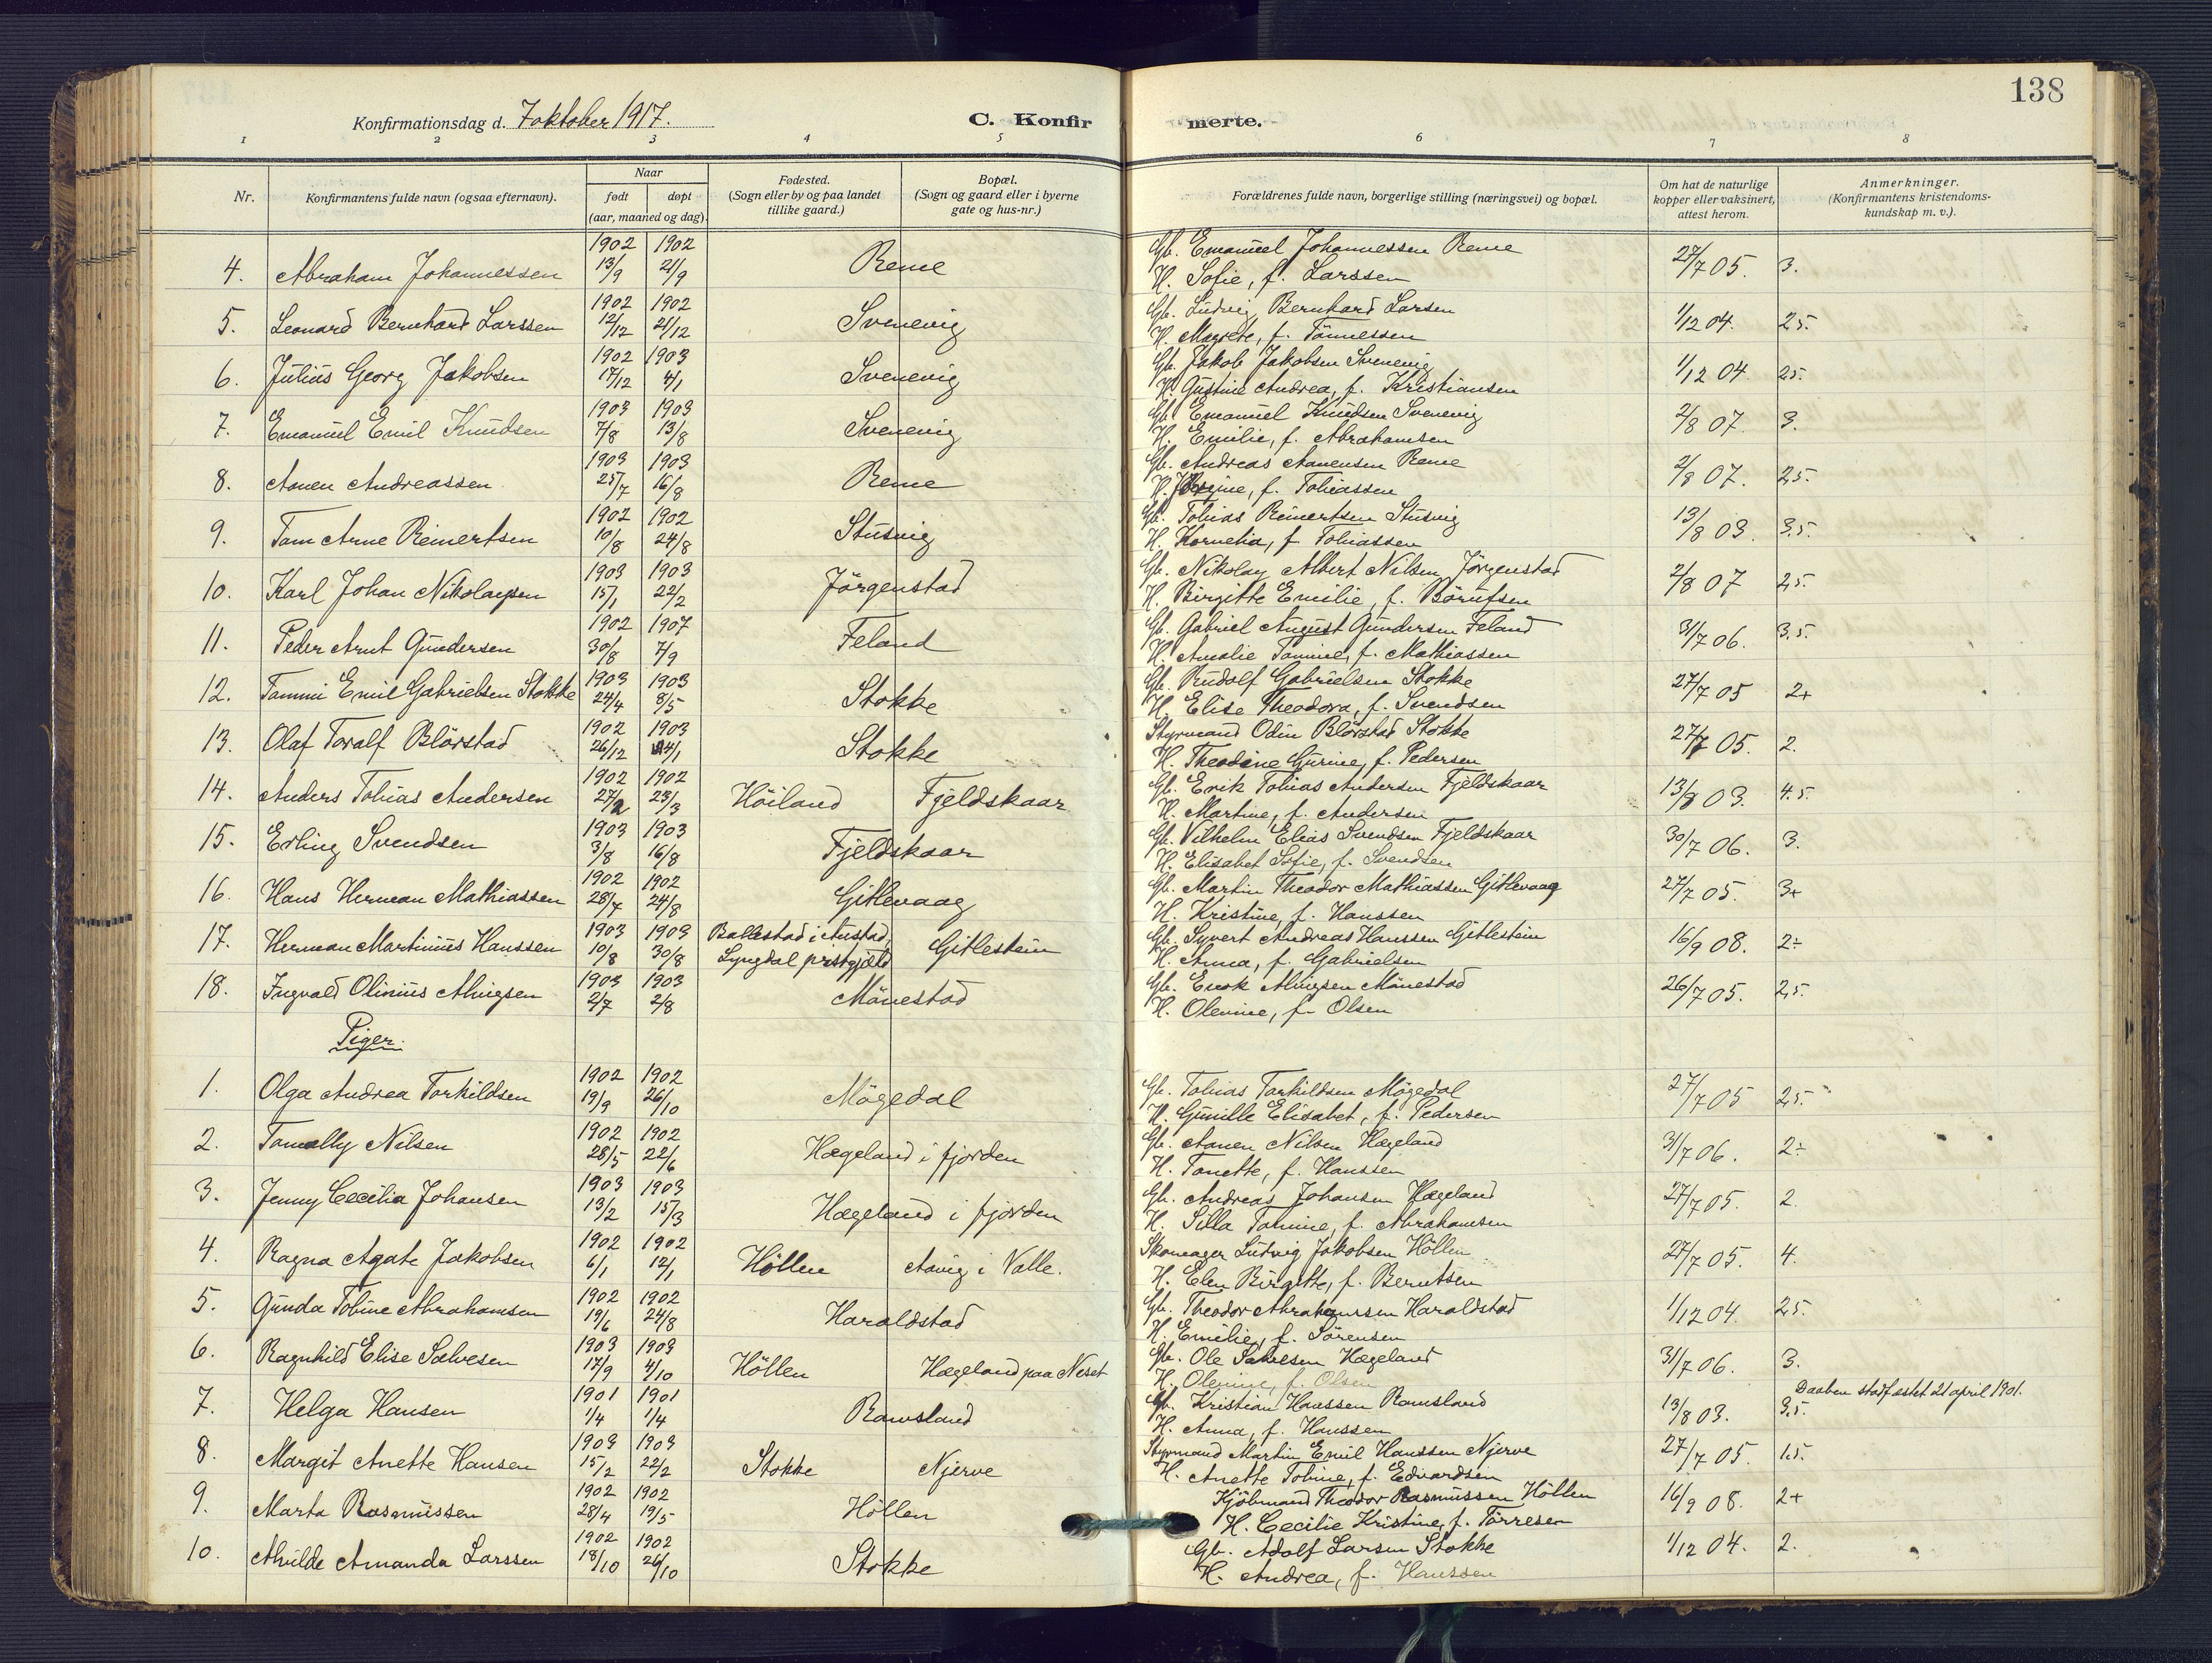 138
Konfirmationsdag d. 7 oktober 1917.
C. Konfirmerte.
1 2 3 4 5 6 7 8
Nr.
Konfirmantens fulde navn (ogsaa efternavn).
Naar
født
døpt
(aar, maaned og dag).
Fødested.
(Sogn eller by og paa landet
tillike gaard.)
Bopæl.
(Sogn og gaard eller i byerne
gate og hus-nr.)
Forældrenes fulde navn, borgerlige stilling (næringsvei) og bopæl.
Om hat de naturlige
kopper eller vaksinert,
attest herom.
Anmerkninger.
(Konfirmantens kristendoms-
kundskap m. v.).
4. Abraham Johannessen 1902 13/9 1902 21/9 Reme Gb. Emanuel Johannessen Reme 27/7 05. 3.
H. Sofie, f. Larssen
5. Leonard Bernhard Larssen 1902 12/12 1902 21/12 Svenevig Gb. Ludvig Bernhard Larsen 1/12 04. 2.5.
H. Magrete, f. Tönnessen
6. Julius Georg Jakobsen 1902 17/12 1903 4/1 Svenevig Gb. Jakob Jakobsen Svenevig 1/12 04 2.5.
H. Gustine Andrea, f. Kristiansen
7. Emanuel Emil Knudsen 1903 7/8 1903 13/8 Svenevig Gb. Emanuel Knudsen Svenevig 2/8 07. 3.
H. Emilie, f. Abrahamsen
8. Aanen Andreassen 1903 25/7 1903 16/8 Reme Gb. Andreas Aanensen Reme 2/8 07. 2.5.
H. f. Tobiassen
9. Tom Arne Reinertsen 1902 10/8 1902 24/8 Stusvig Gb. Tobias Reinertsen Stusvig 13/8 03. 3.5.
H. Kornelia, f. Tobiassen
10. Karl Johan Nikolaysen 1903 15/1 1903 22/2 Jörgenstad Gb. Nikolay Albert Nilsen Jörgenstad 2/8 07 2.5.
H. Birgitte Emilie, f. Börufsen
11. Peder Arnt Gundersen 1902 30/8 1907 7/9 Feland Gb. Gabriel August Gundersen Feland 31/7 06. 3.5.
H. Amalie Tomine, f. Mathiassen
12. Tommi Emil Gabrielsen Stokke 1903 24/4 1903 8/5 Stokke Gb. Rudolf Gabrielsen Stokke 27/7 05 2+
H. Elise Theodora, f. Svendsen
13. Olaf Toralf Blörstad 1902 26/12 1903 4/1 Stokke Styrmand Odin Blörstad Stokke 27/7 05. 2.
H. Theodine Gurine, f. Pedersen
14. Anders Tobias Andersen 1902 27/2 1902 23/3 Höiland Fjeldskaar Gb. Erik Tobias Andersen Fjeldskaar 13/8 03. 4.5.
H. Martine, f. Andersen
15. Erling Svendsen 1903 3/8 1903 16/8 Fjeldskaar Gb. Vilhelm Elias Svendsen Fjeldskaar 30/7 06. 3.
H. Elisabet Sofie, f. Svendsen
16. Hans Herman Mathiassen 1902 28/7 1902 24/8 Gitlevaag Gb. Martin Theodor Mathiassen Gitlevaag 27/7 05. 3+
H. Kristine, f. Hanssen
17. Herman Martinius Hanssen 1903 10/8 1903 30/8 Ballestad i Austad, Lyngdal prstgjæld Gitlestein Gb. Syvert Andreas Hanssen Gitlestein 16/9 08. 2÷
H. Anna, f. Gabrielsen
18. Ingvald Olinius Alvigsen 1903 2/7 1903 2/8 Mönestad Gb. Enok Alvigsen Mönestad 26/7 05. 2.5.
H. Olevine, f. Olsen
Piger.
1. Olga Andrea Torkildsen 1902 19/9 1902 26/10 Mögedal Gb. Tobias Torkildsen Mögedal 27/7 05 2.5.
H. Gunille Elisabet, f. Pedersen
2. Tomally Nilsen 1902 28/5 1902 22/6 Hægeland i fjorden Gb. Aanen Nilsen Hægeland 31/7 06. 2÷
H. Tonette, f. Hanssen
3. Jenny Cecilia Johansen 1903 13/2 1903 15/3 Hægeland i fjorden Gb. Andreas Johansen Hægeland 27/7 05. 2.
H. Silla Tomine, f. Abrahamsen
4. Ragna Agate Jakobsen 1902 6/1 1902 12/1 Höllen Aavig i Valle. Skomager Ludvig Jakobsen Höllen 27/7 05. 4.
H. Elen Birgitte, f. Berntsen
5. Gunda Tobine Abrahamsen 1902 19/6 1902 24/8 Haraldstad Gb. Theodor Abrahamsen Haraldstad 1/12 04. 2.5.
H. Emilie, f. Sörensen
6. Ragnhild Elise Salvesen 1903 17/9 1903 4/10 Höllen Hægeland paa Neset Gb. Ole Salvesen Hægeland 31/7 06. 3.
H. Olevine, f. Olsen
7. Helga Hansen 1901 1/4 1901 1/4 Ramsland Gb. Kristian Hanssen Ramsland 13/8 03. 3.5. Daaben stadfæstet 21 april 1901.
H. Anna, f. Hanssen
8. Margit Anette Hansen 1903 15/2 1903 22/2 Stokke Njerve Styrmand Martin Emil Hanssen Njerve 27/7 05. 1.5.
H. Anette Tobine, f. Edvardsen
9. Marta Rasmussen 1902 28/4 1902 19/5 Höllen Kjöbmand Theodor Rasmussen Höllen 16/9 08. 2+
H. Cecilie Kristine, f. Törresen
10. Alvilde Amanda Larssen 1902 18/10 1902 26/10 Stokke Gb. Adolf Larsen Stokke 1/12 04. 2.
H. Andrea, f. Hanssen